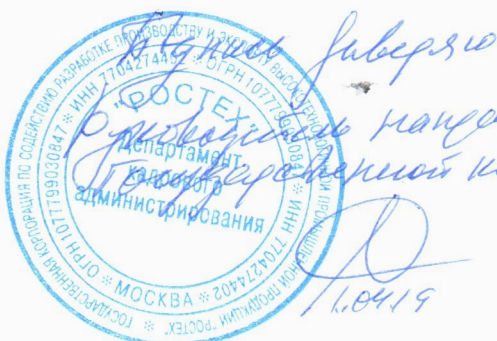 ГОСУДАРСТВЕННАЯ КОРПОРАЦИЯ ПО СОДЕЙСТВИЮ РАЗРАБОТКЕ ПРОИЗВОДСТВУ И ЭКСПОРТУ ВЫСОКОТЕХНОЛОГИЧНОЙ ПРОМЫШЛЕННОЙ ПРОДУКЦИИ "РОСТЕХ"
ОГРН 1077799030847 * ИНН 7704274402 * ОГРН 1077799030847 * ИНН 7704274402
"РОСТЕХ"
Департамент
кадрового
администрирования
* МОСКВА *
заверяю
Государственной к
1.04.19